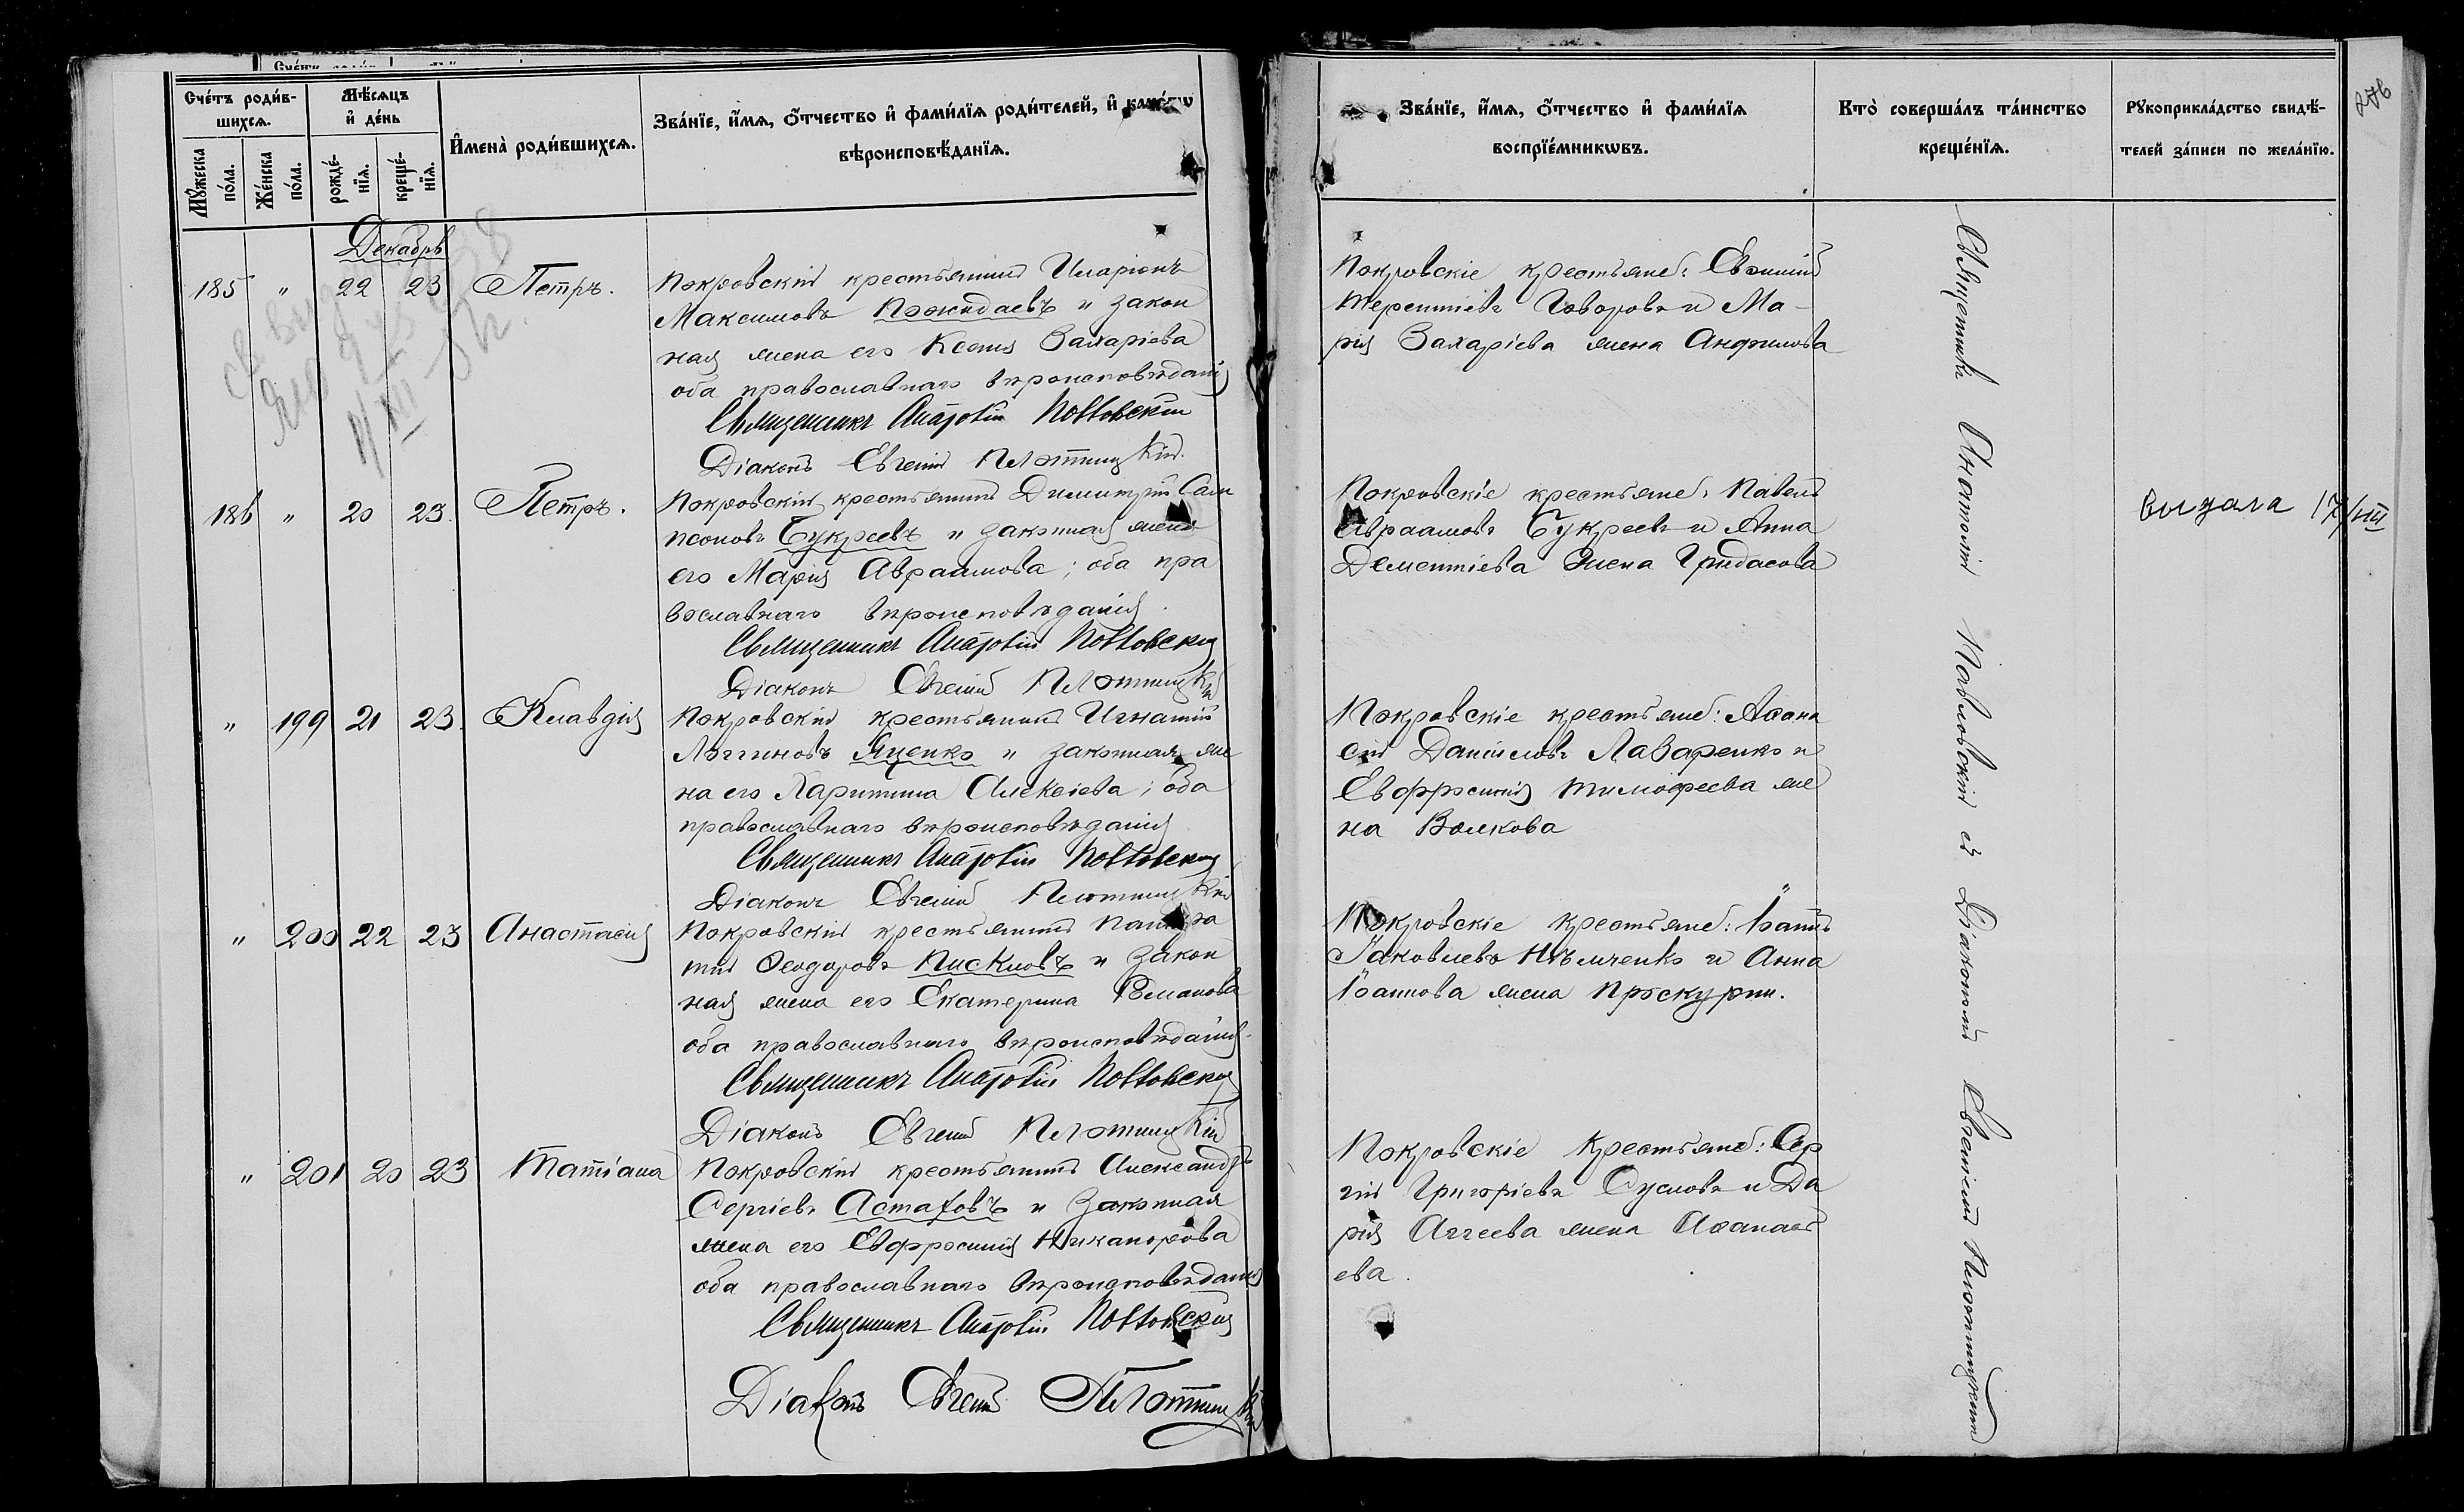 Сче́тъ роди́в-
шихсѧ.
Мѣ́сѧцъ
и҆ де́нь
Мꙋ́жеска
по́ла.
Же́нска
по́ла.
рожде́-
нїѧ.
креще́-
нїѧ.
И҆мена̀ роди́вшихсѧ.
Зва́нїе, и҆́мѧ, ѻ҆́тчество и҆ фами́лїѧ роди́телей, и҆ како́гѡ
вѣроисповѣ́данїѧ.
Декабрь
185 " 22 23 Петръ.
Покровскій крестьянинъ Иларіонъ
Максимовъ Пожидаевъ и закон
ная жена его Ксенія Захаріева
оба православнаго вѣроисповѣданія
Священникъ Анатолій Павловскій
Діаконъ Евгеній Плотницкій.
186 " 20 23. Петръ.
Покровскій крестьянинъ Димитрій Сам
псоновъ Букреевъ и законная жена
его Марія Авраамова; оба пра
вославнаго вѣроисповѣданія.
Священникъ Анатолій Павловскій
Діаконъ Евгеній Плотницкій
" 199 21 23. Клавдія
Покровскій крестьянинъ Игнатій
Логгиновъ Яценко и законная же
на его Харитина Алексіева; оба
православнаго вѣроисповѣданія
Священникъ Анатолій Павловскій
Діаконъ Евгеній Плотницкій
" 200 22 23 Анастасія
Покровскій крестьянинъ
Ѳеодоровъ Пискловъ и закон
ная жена его Екатерина Романова
оба православнаго вѣроисповѣданія
Священникъ Анатолій Павловскій
Діаконъ Евгеній Плотницкій
" 201 20 23 Татіана
Покровскій крестьянинъ Александръ
Сергіевъ Астаховъ и законная
жена его Евфросинія Никанорова
оба православнаго вѣроисповѣданія
Священникъ Анатолій Павловскій
Діаконъ Евгеній Плотницкій
Зва́нїе, и҆́мѧ, ѻ҆́тчество и҆ фами́лїѧ
воспрїе́мникѡвъ.
Кто̀ соверша́лъ та́инство
креще́нїѧ.
Рꙋкоприкла́дство свидѣ́-
телей за́писи по жела́нїю.
276
Покровскіе крестьяне: Евѳимій
Терентіевъ Говоровъ и Ма-
рія Захаріева жена Анфилова
Покровскіе крестьяне: Павелъ
Авраамовъ Букреевъ и Анна
Дементіева жена Гридасова
Выдала 17/VIII
Покровскіе крестьяне: Аѳана
сій Даніиловъ Лазаренко и
Евфросинія Тимоѳеева же
на Волкова
Покровскіе крестьяне: Іоаннъ
Іаковлевъ Нѣмченко и Анна
Іоаннова жена Проскурин.
Покровскіе крестьяне: Сер
гій Григоріевъ Сусловъ и Да
рія Аггеева жена Аѳанась
ева.
Священникъ Анатолій Павловскій съ Діакономъ Евгеніемъ Плотницкимъ